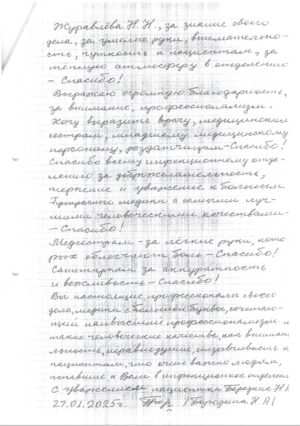 Журавлёва Н.Н., за знание своего
дела, за умелые руки, внимательно-
сть, чуткость к пациентам, за
тёплую атмосферу в отделении
- Спасибо!
Выражаю огромную благодарность,
за внимание, профессионализм.
Хочу выразить врачу, медицинским
сёстрам, младшему медицинскому
персоналу, раздатчицам - Спасибо!
Спасибо всему инфекционному отде-
лению за доброжелательность,
терпение и уважение к больным.
медики с самыми луч-
шими человеческими качествами -
- Спасибо!
Медсёстрам - за лёгкие руки, кото
рые облегчают боль - Спасибо!
Санитаркам за аккуратность
и вежливость - Спасибо!
Вы настоящие профессионалы своего
дела, медики с большой буквы, сочетаю-
щий наивысший профессионализм и
такие человеческие качества, как внимат
льность, неравнодушие, отзывчивость к
пациентам, что очень важно людям,
попавшие к Вам в инфекционное отделение
С уважением пациентка Бородина Н.А
27.01.2025г. / Бородина Н А/